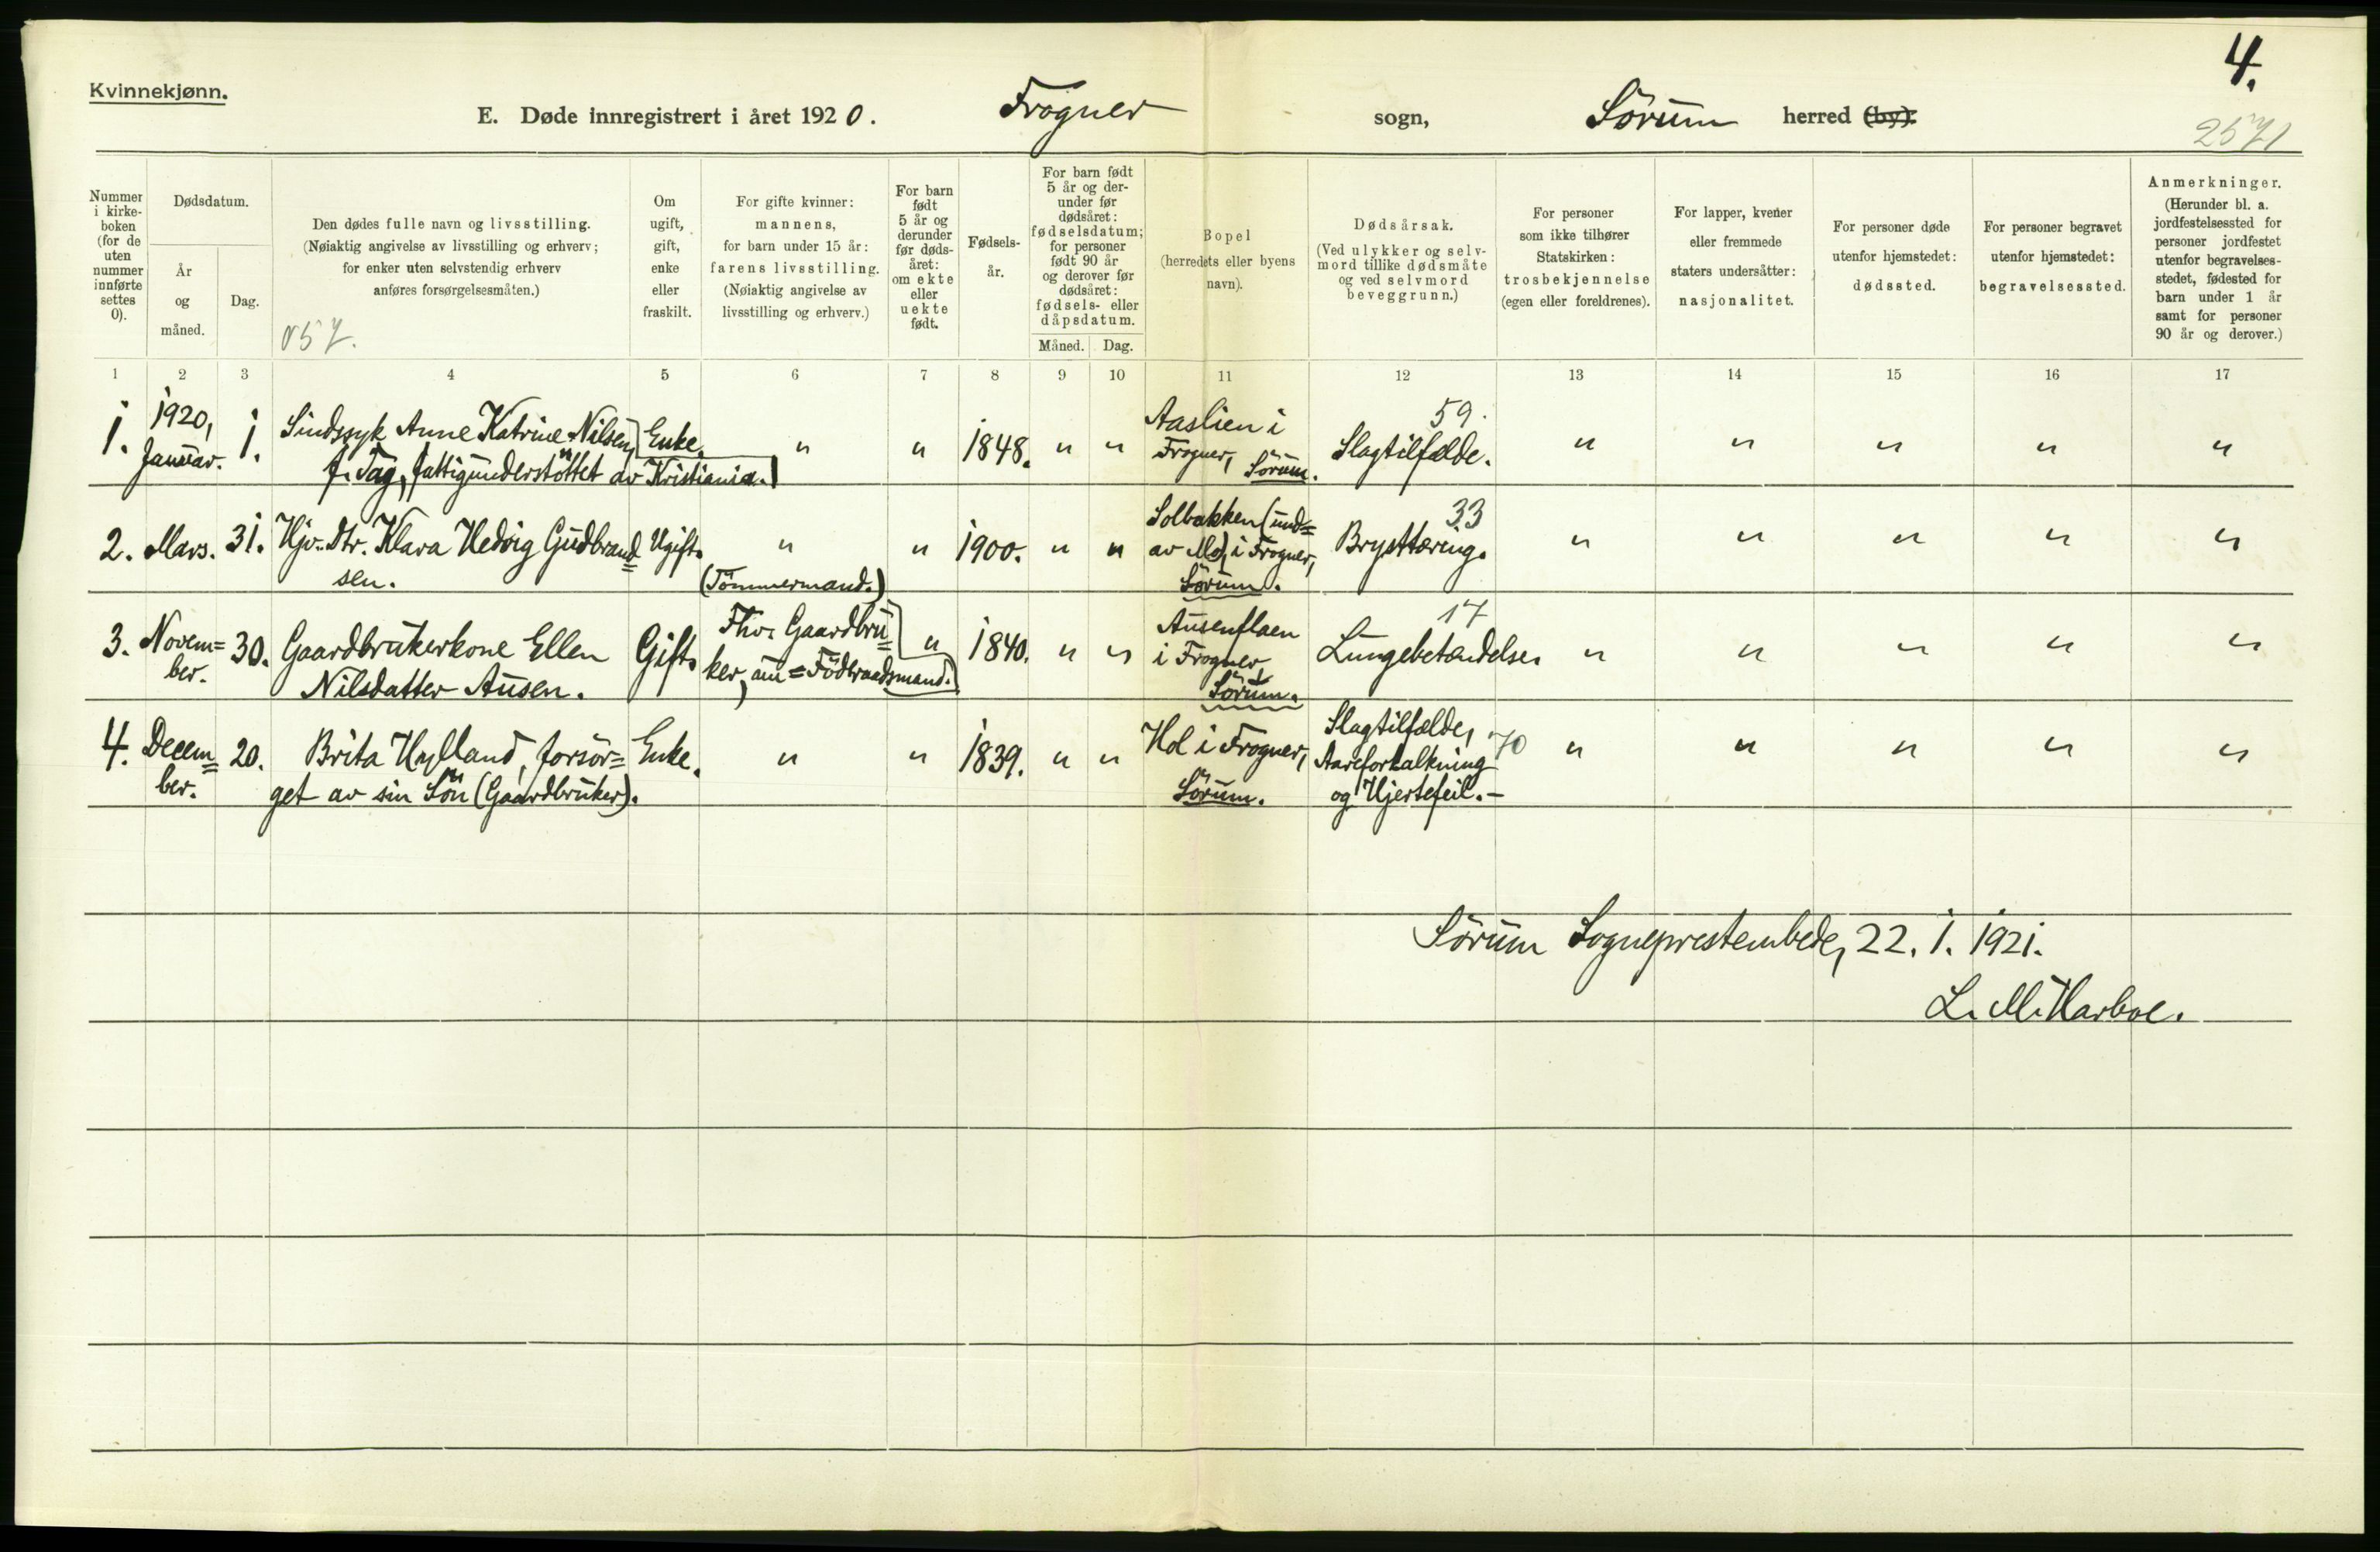 4.
Kvinnekjønn.
E. Døde innregistrert i året 1920. Frogner sogn, Sørum herred (by).
2571
Nummer i kirke- boken (for de uten nummer innførte settes 0).
Dødsdatum.
År og måned.
Dag.
Den dødes fulle navn og livsstilling.
(Nøiaktig angivelse av livsstilling og erhverv;
for enker uten selvstendig erhverv
anføres forsørgelsesmåten.)
057.
Om ugift, gift, enke eller fraskilt.
For gifte kvinner:
mannens,
for barn under 15 år:
farens livsstilling.
(Nøiaktig angivelse av
livsstilling og erhverv.)
For barn født 5 år og derunder før døds- året: om ekte eller uekte født.
Fødsels- år.
For barn født 5 år og der- under før dødsåret: fødselsdatum; for personer født 90 år og derover før dødsåret: fødsels- eller dåpsdatum.
Måned. Dag.
Bopel
(herredets eller byens
navn).
Dødsårsak.
(Ved ulykker og selv-
mord tillike dødsmåte
og ved selvmord
beveggrunn.)
For personer
som ikke tilhører
Statskirken:
trosbekjennelse
(egen eller foreldrenes).
For lapper, kvener
eller fremmede
staters undersåtter:
nasjonalitet.
For personer døde
utenfor hjemstedet:
dødssted.
For personer begravet
utenfor hjemstedet:
begravelsessted.
Anmerkninger.
(Herunder bl. a.
jordfestelsessted for
personer jordfestet
utenfor begravelses-
stedet, fødested for
barn under 1 år
samt for personer
90 år og derover.)
1 2 3 4 5 6 7 8 9 10 11 12 13 14 15 16 17
1. 1920, Januar. 1. Sindssyk Anne Katrine Nilsen, Enke. " " 1848. " " Aaslien i Frogner, Sørum. 59. Slagtilfælde. " " " " "
f. Tag, fattigunderstøttet av Kristiania.)
2. Mars. 31. Hjv. Dtr. Klara Hedvig Gudbrand= Ugift. " " 1900. " " Solbakken (und= av Mo), i Frogner, Sørum. 33 Brysttæring. " " " " "
sen.
3. Novem= ber. 30. Gaardbrukerkone Ellen Nilsdatter Ausen. Gift. (Tømmermand.) Fhv. Gaardbru= ker, nu = Födraadsmand. " 1840. " " Ausenflaen i Frogner, Sørum. 17 Lungebetændelse. " " " " "
4. Decem= ber. 20. Brita Hylland, forsør= get av sin Søn (Gaardbruker). Enke. " " 1839. " " Hol i Frogner, Sørum. Slagtilfælde, Aareforkalkning og Hjertefeil.- 70 " " " " "
Sørum Sogneprestembede, 22. 1. 1921.
L. M. Harboe.